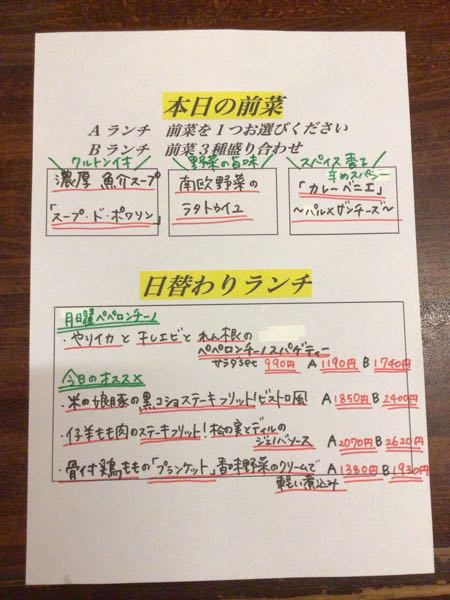 本日の前菜
Aランチ 前菜を1つお選びください
Bランチ 前菜3種盛り合わせ
クルトン付き
濃厚 魚介スープ
「スープ・ド・ポワソン」
野菜の旨味
南欧野菜の
ラタトゥイユ
スパイス香る
辛めスパイシー
「カレーベニエ」
〜パルメザンチーズ〜
日替わりランチ
月曜ペペロンチーノ
・やりイカと干しエビとれんこ根の
ペペロンチーノスパゲティー
サラダset 990円 A1190円 B1740円
今日のオススメ
・米の娘豚の黒コショステーキフリット!ビストロ風 A1850円 B2400円
・仔羊もも肉のステーキフリット!松の実とディルの
ジェノバソース A2070円 B2620円
・骨付鶏ももの「ブランケット」香味野菜のクリームで
軽い煮込み A1380円 B1930円